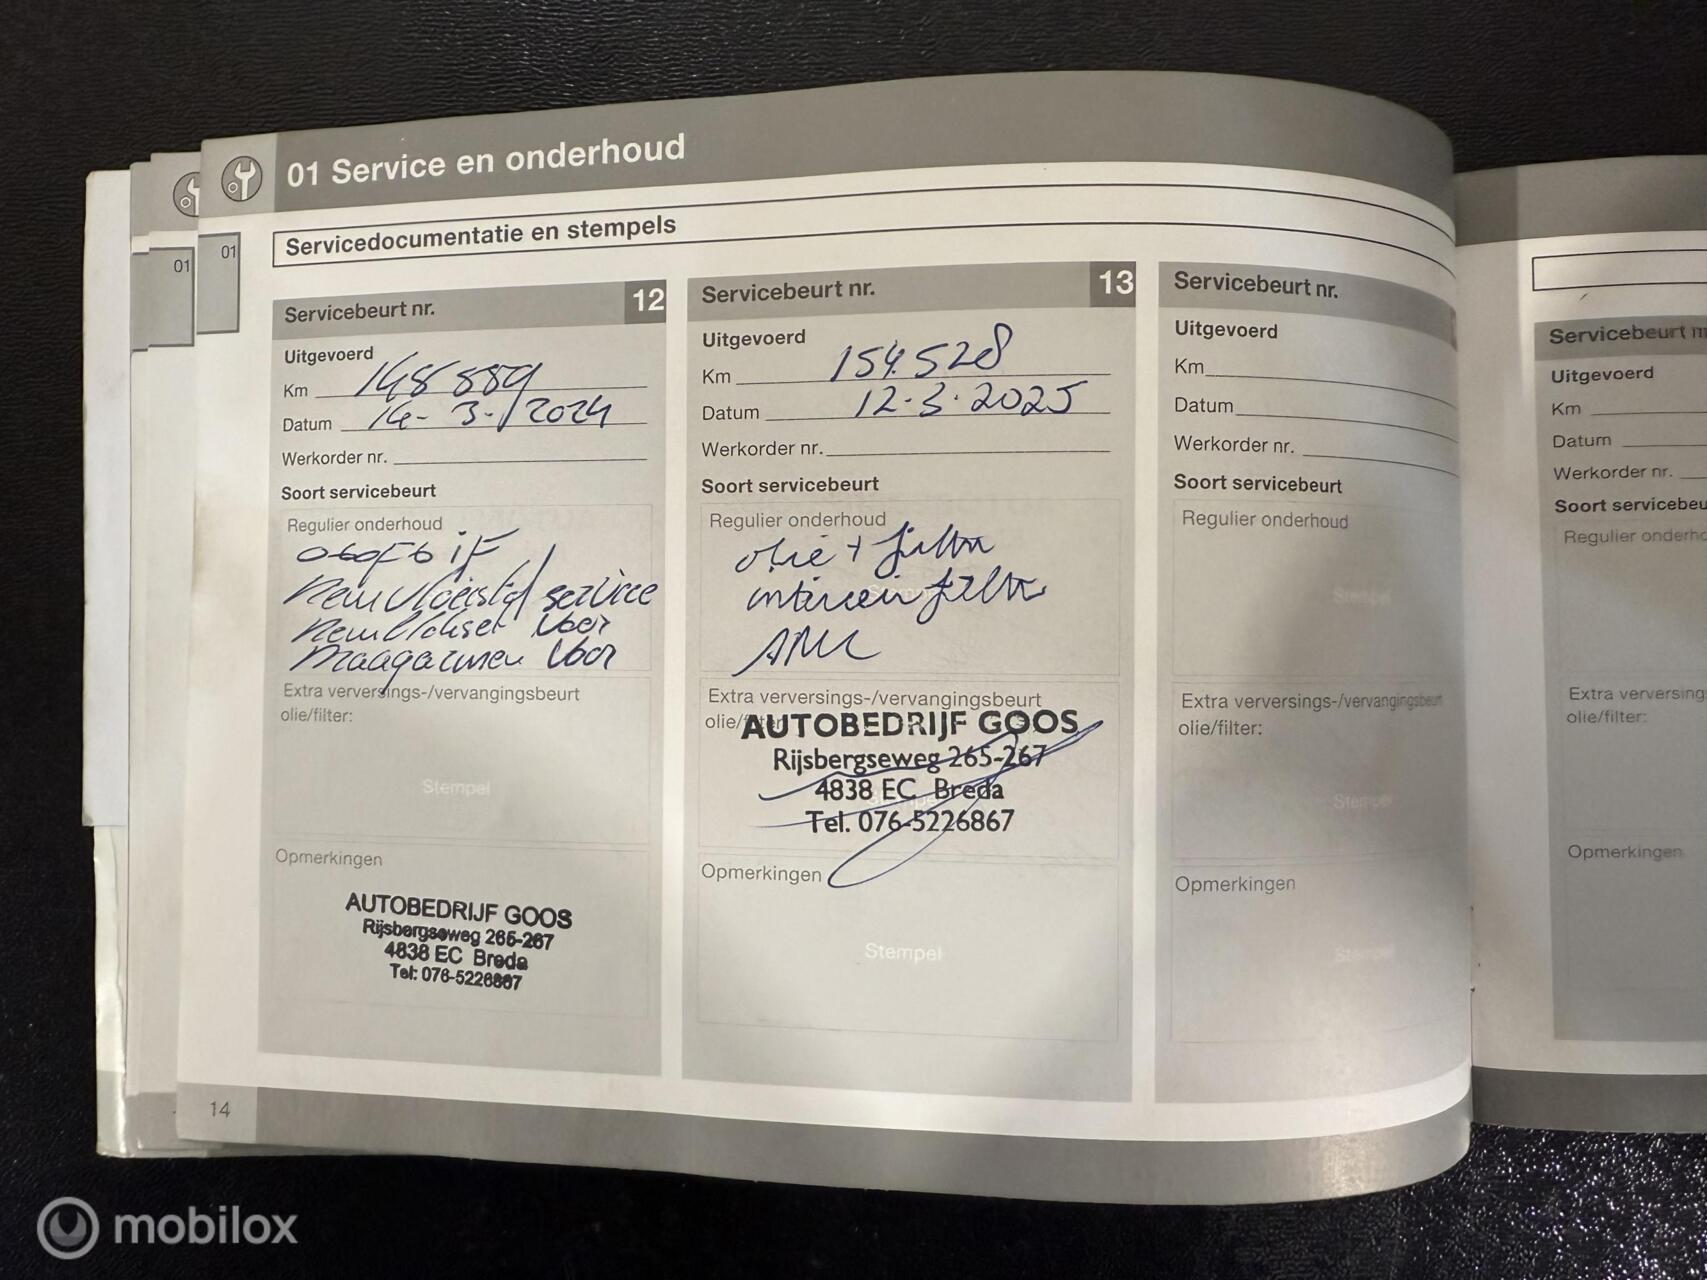 01 Service en onderhoud
Servicedocumentatie en stempels
01
01
Servicebeurt nr. 12
Uitgevoerd
Km 148 889
Datum 14-3-/2024
Werkorder nr.
Soort servicebeurt
Regulier onderhoud
Remvloeistof service
Remblokset Voor
Draagarmen Voor
Extra verversings-/vervangingsbeurt
olie/filter:
Stempel
Opmerkingen
AUTOBEDRIJF GOOS
Rijsbergseweg 265-267
4838 EC Breda
Tel: 076-5226867
Servicebeurt nr. 13
Uitgevoerd
Km 154.528
Datum 12.3.2025
Werkorder nr.
Soort servicebeurt
Regulier onderhoud
olie + filter
interieur filter
Extra verversings-/vervangingsbeurt
olie/filter
AUTOBEDRIJF GOOS
Rijsbergseweg 265-267
4838 EC Breda
Tel. 076-5226867
Opmerkingen
Stempel
Servicebeurt nr.
Uitgevoerd
Km
Datum
Werkorder nr.
Soort servicebeurt
Regulier onderhoud
Stempel
Extra verversings-/vervangingsbeurt
olie/filter:
Stempel
Opmerkingen
Stempel
Servicebeurt n
Uitgevoerd
Km
Datum
Werkorder nr.
Soort servicebeu
Regulier onderho
Extra verversing
olie/filter:
Opmerkingen
14
mobilox